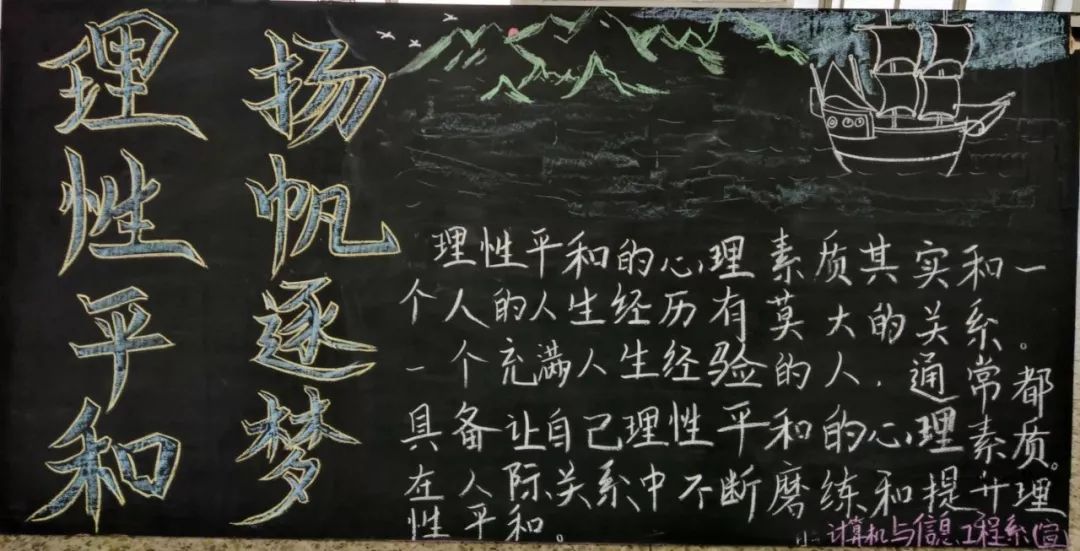 理性平和
扬帆逐梦
理性平和的心理素质其实和一
个人的人生经历有莫大的关系。
一个充满人生经验的人,通常都
具备让自己理性平和的心理素质。
在人际关系中不断磨练和提升理
性平和。
计算机与信息工程系(宣)